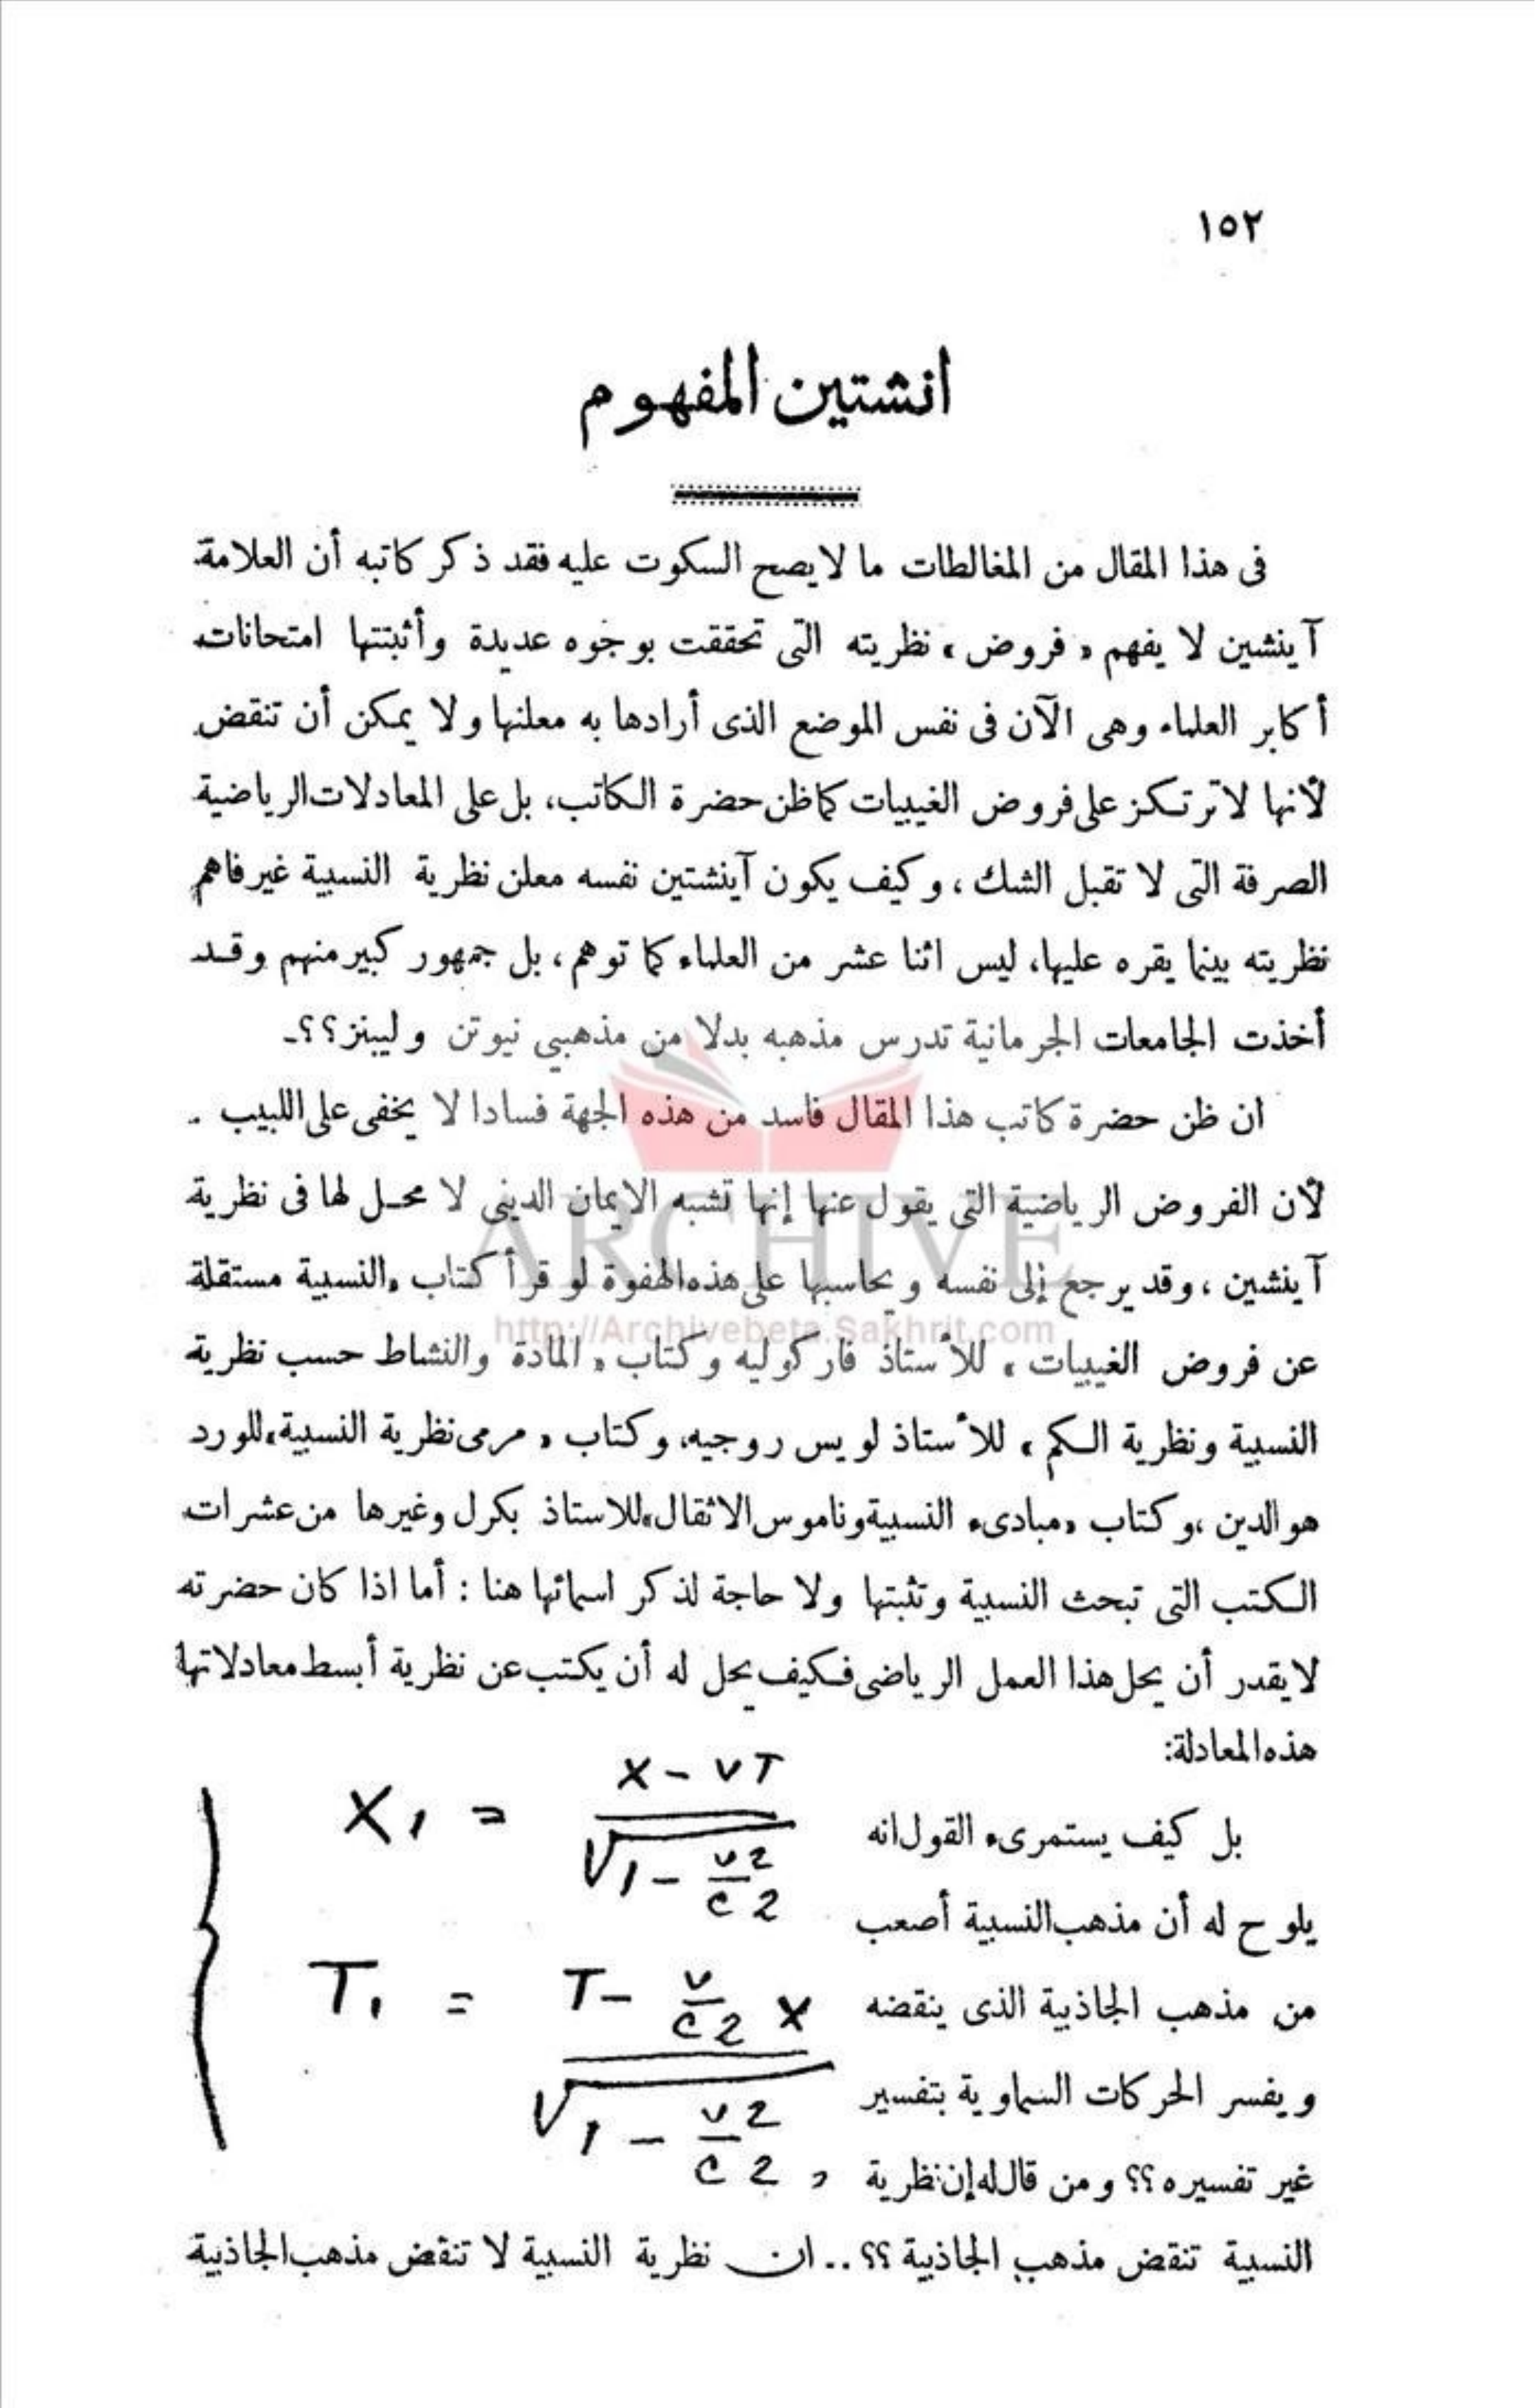 ١٥٢
انشتين المفهوم
فى هذا المقال من المغالطات ما لا يصح السكوت عليه فقد ذكر كاتبه أن العلامة
آينشين لا يفهم « فروض » نظريته التى تحققت بوجوه عديدة وأثبتتها امتحانات
أكابر العلماء وهى الآن فى نفس الموضع الذى أرادها به معلنها ولا يمكن أن تنقض
لأنها لا ترتكز على فروض الغيبيات كما ظن حضرة الكاتب، بل على المعادلات الرياضية
الصرفة التى لا تقبل الشك ، وكيف يكون آينشتين نفسه معلن نظرية النسبية غير فاهم
نظريته بينما يقره عليها، ليس اثنا عشر من العلماء كما توهم ، بل جمهور كبير منهم وقد
أخذت الجامعات الجرمانية تدرس مذهبه بدلا من مذهبي نيوتن وليبنز؟؟ـ
ان ظن حضرة كاتب هذا المقال فاسد من هذه الجهة فسادا لا يخفى على اللبيب .
لأن الفروض الرياضية التى يقول عنها إنها تشبه الايمان الدينى لا محل لها فى نظرية
آينشين ، وقد يرجع إلى نفسه ويحاسبها على هذه الهفوة لو قرأ كتاب «النسبية مستقلة
عن فروض الغيبيات » للأستاذ فاركوليه وكتاب « المادة والنشاط حسب نظرية
النسبية ونظرية الكم » للأستاذ لويس روجيه، وكتاب « مرمى نظرية النسبية» للورد
هوالدين ،وكتاب «مبادىء النسبية وناموس الاثقال» للاستاذ بكرل وغيرها من عشرات
الكتب التى تبحث النسبية وتثبتها ولا حاجة لذكر اسمائها هنا : أما اذا كان حضرته
لا يقدر أن يحل هذا العمل الرياضى فكيف يحل له أن يكتب عن نظرية أبسط معادلاتها
هذه المعادلة:
بل كيف يستمرىء القول انه
يلوح له أن مذهب النسبية أصعب
من مذهب الجاذبية الذى ينقضه
ويفسر الحركات السماوية بتفسير
غير تفسيره ؟؟ ومن قال له إن نظرية «
X₁ = (X - VT) / √(1 - v2/c2)
T₁ = (T - v/c2 X) / √(1 - v2/c2)
النسبية تنقض مذهب الجاذبية ؟؟ .. ان نظرية النسبية لا تنقض مذهب الجاذبية
ARCHIVE
http://Archivebeta.Sakhrit.com